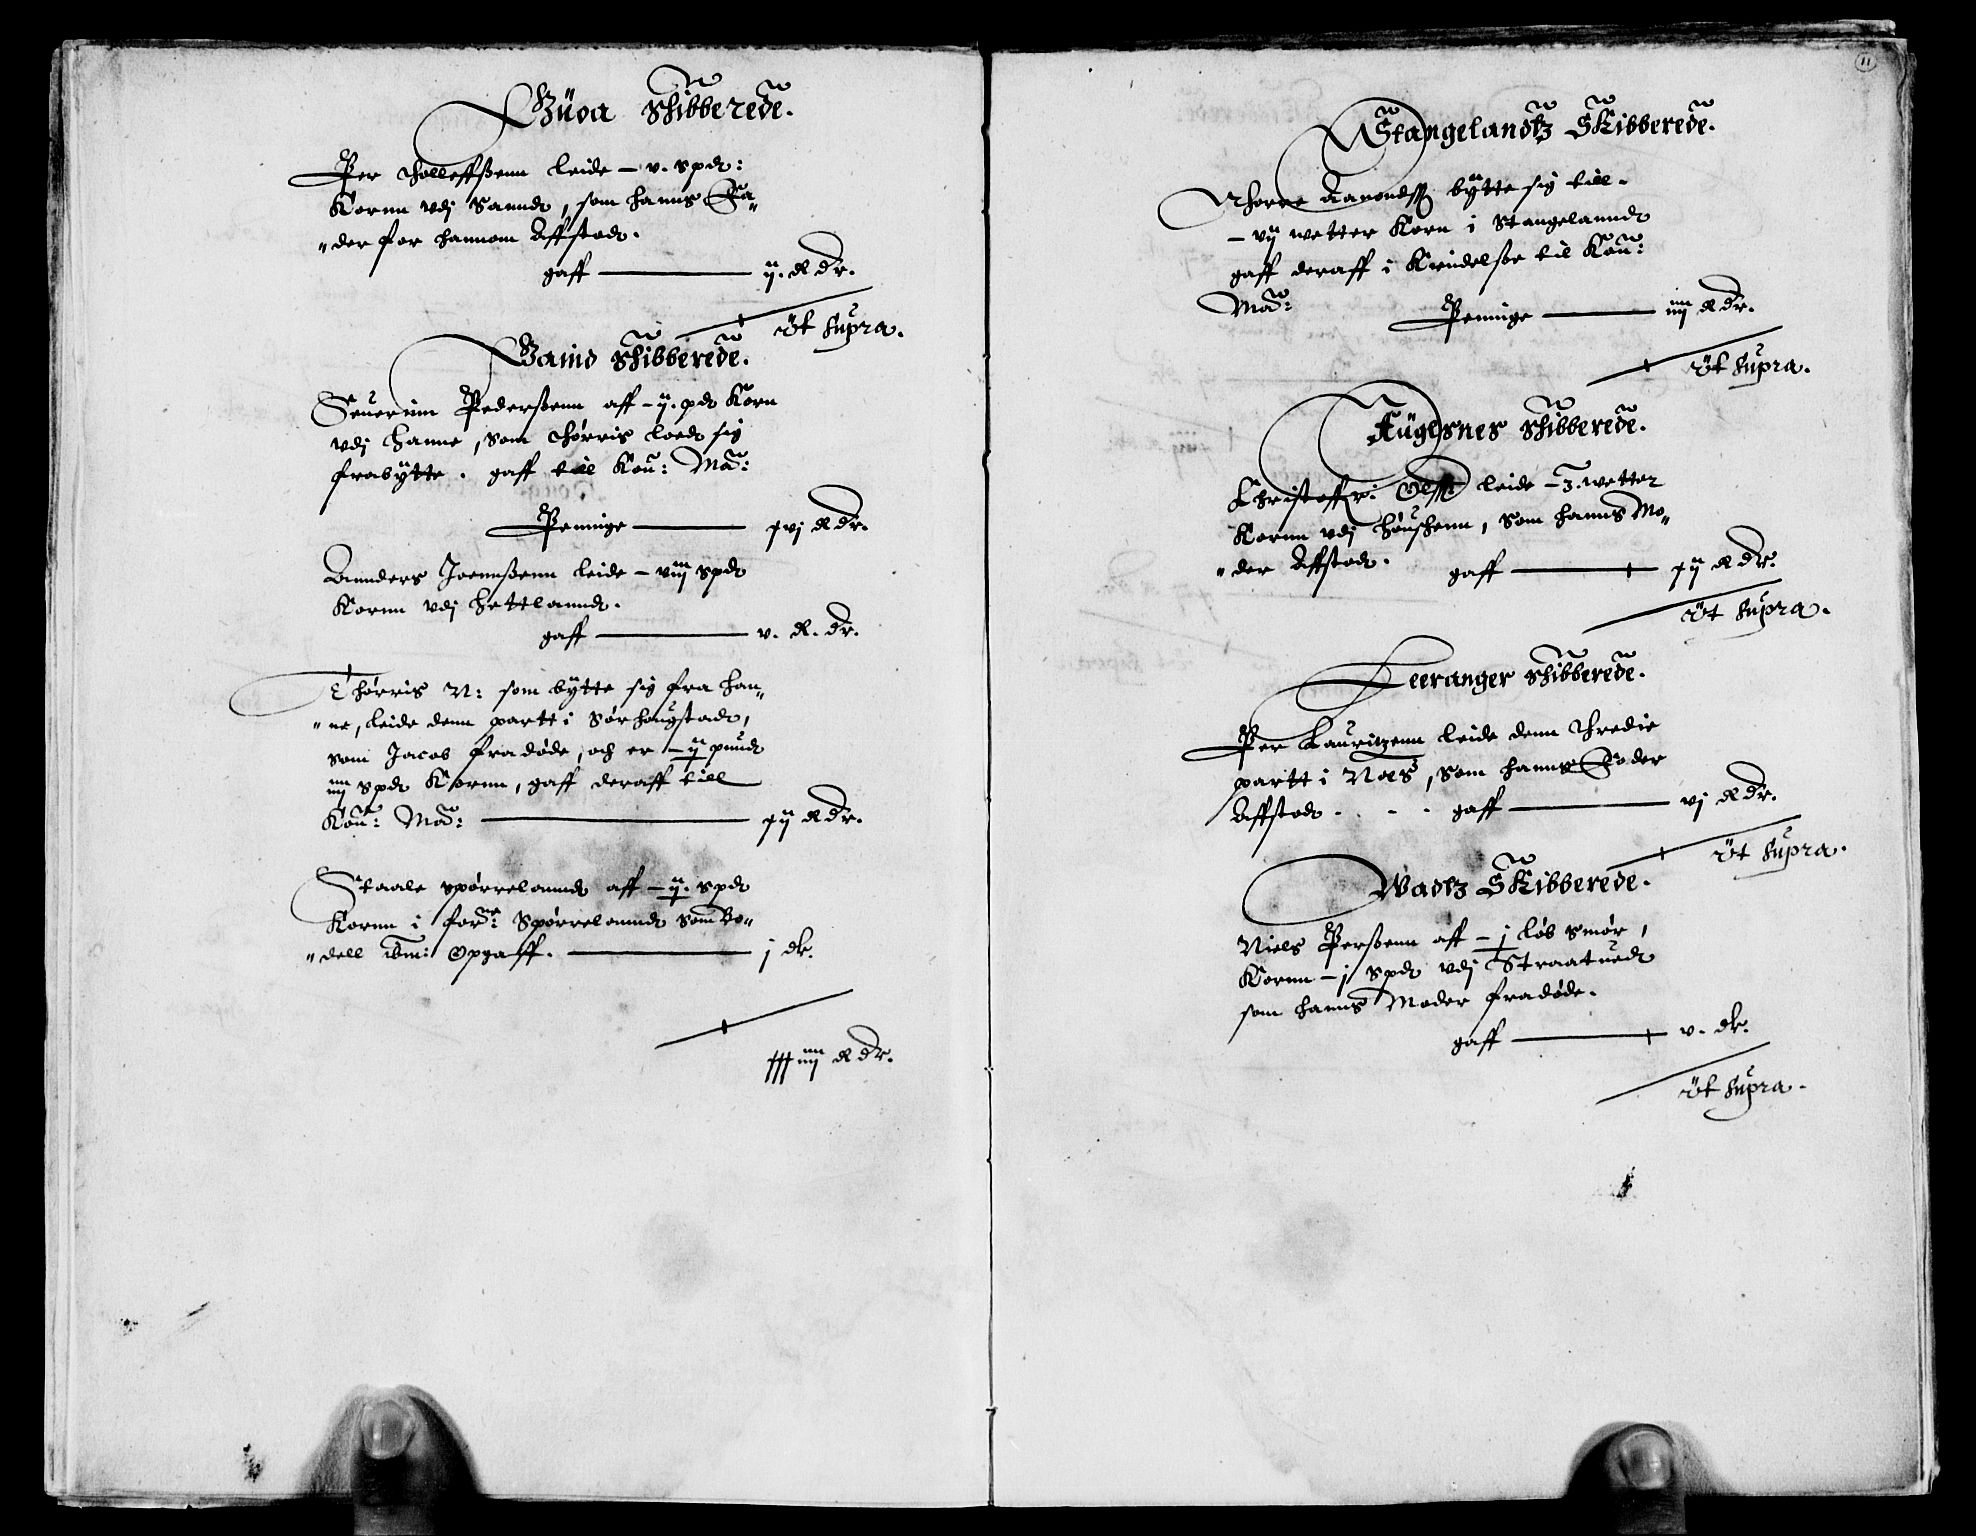 Büoa Skibberede.
Per Tholleffßenn leide – v. spdt:
Kornn vdj Sanndt, som hanns Fa„
„der for hannom Affstod.
gaff ——— ij. R dr.
Ut Supra.
Baund Skibberede.
Seuerinn Pederßenn aff – ij. pdt Korn
vdj Hanne, som Thørris loed sig
frabÿtte. gaff till Kon: Ma:
Penninge ——— xvj R dr.
Annders Joennßenn leide – viij spdt
Kornn vdj Hettlanndt.
gaff ——— v. R. dr.
Thørris N: som bÿtte sig fra Han„
„ne, leide denn partt i Sørhougstadt,
som Jacob fradøde, och er – ij pundt
iiij spdt Kornn, gaff deraff till
Kon: Ma: ——— xij R dr.
Staale Spørrelanndt aff – ij. spdt
Kornn i for: Spørrelanndt som Bo„
„dell ibm: Opgaff. ——— j dr.
xxxiiij R dr.
11
Stangelandtz Skibberede.
Thorre Aanondss bÿtte sig till
– vij wetter Korn i Stangelanndt
gaff deraff i Kendelße til Kon:
Ma: Penninge ——— iiij R dr.
Ut Supra.
Aügesnes Skibberede.
Christoffer Olss: leide – 3. wetter
Kornn vdj Houshenn, som hanns Mo„
„der Affstod. gaff ——— xij R dr.
Ut Supra.
Leeranger Skibberede.
Per Lauritzenn leide denn Thredie
partt i Noes, som hanns Fader
Affstod. gaff ——— vj R dr.
Ut Supra.
Wadtz Skibberede.
Niels Perßenn aff – j løb Smør,
Kornn – j spdt vdj Straatuedt
som hanns Moder fradøde.
gaff ——— v. dr.
Ut Supra.